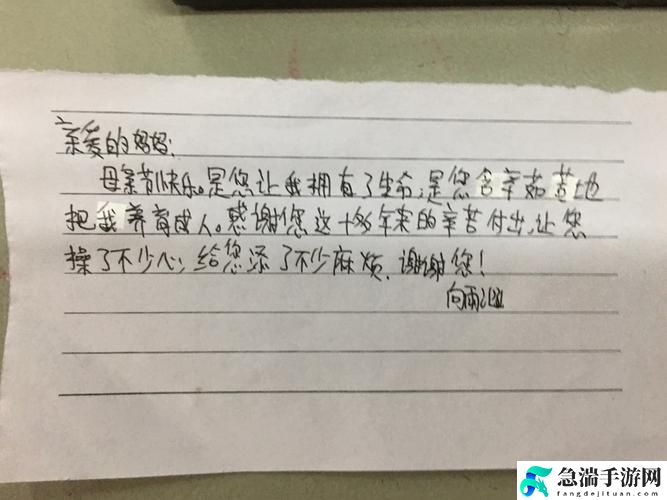 亲爱的妈妈:
母亲节快乐。是您让我拥有了生命,是您含辛茹苦地
把我养育成人。感谢您这十多年来的辛苦付出,让您
操了不少心,给您添了不少麻烦,谢谢您!
向雨
急湍手游网
fangdejituan.com